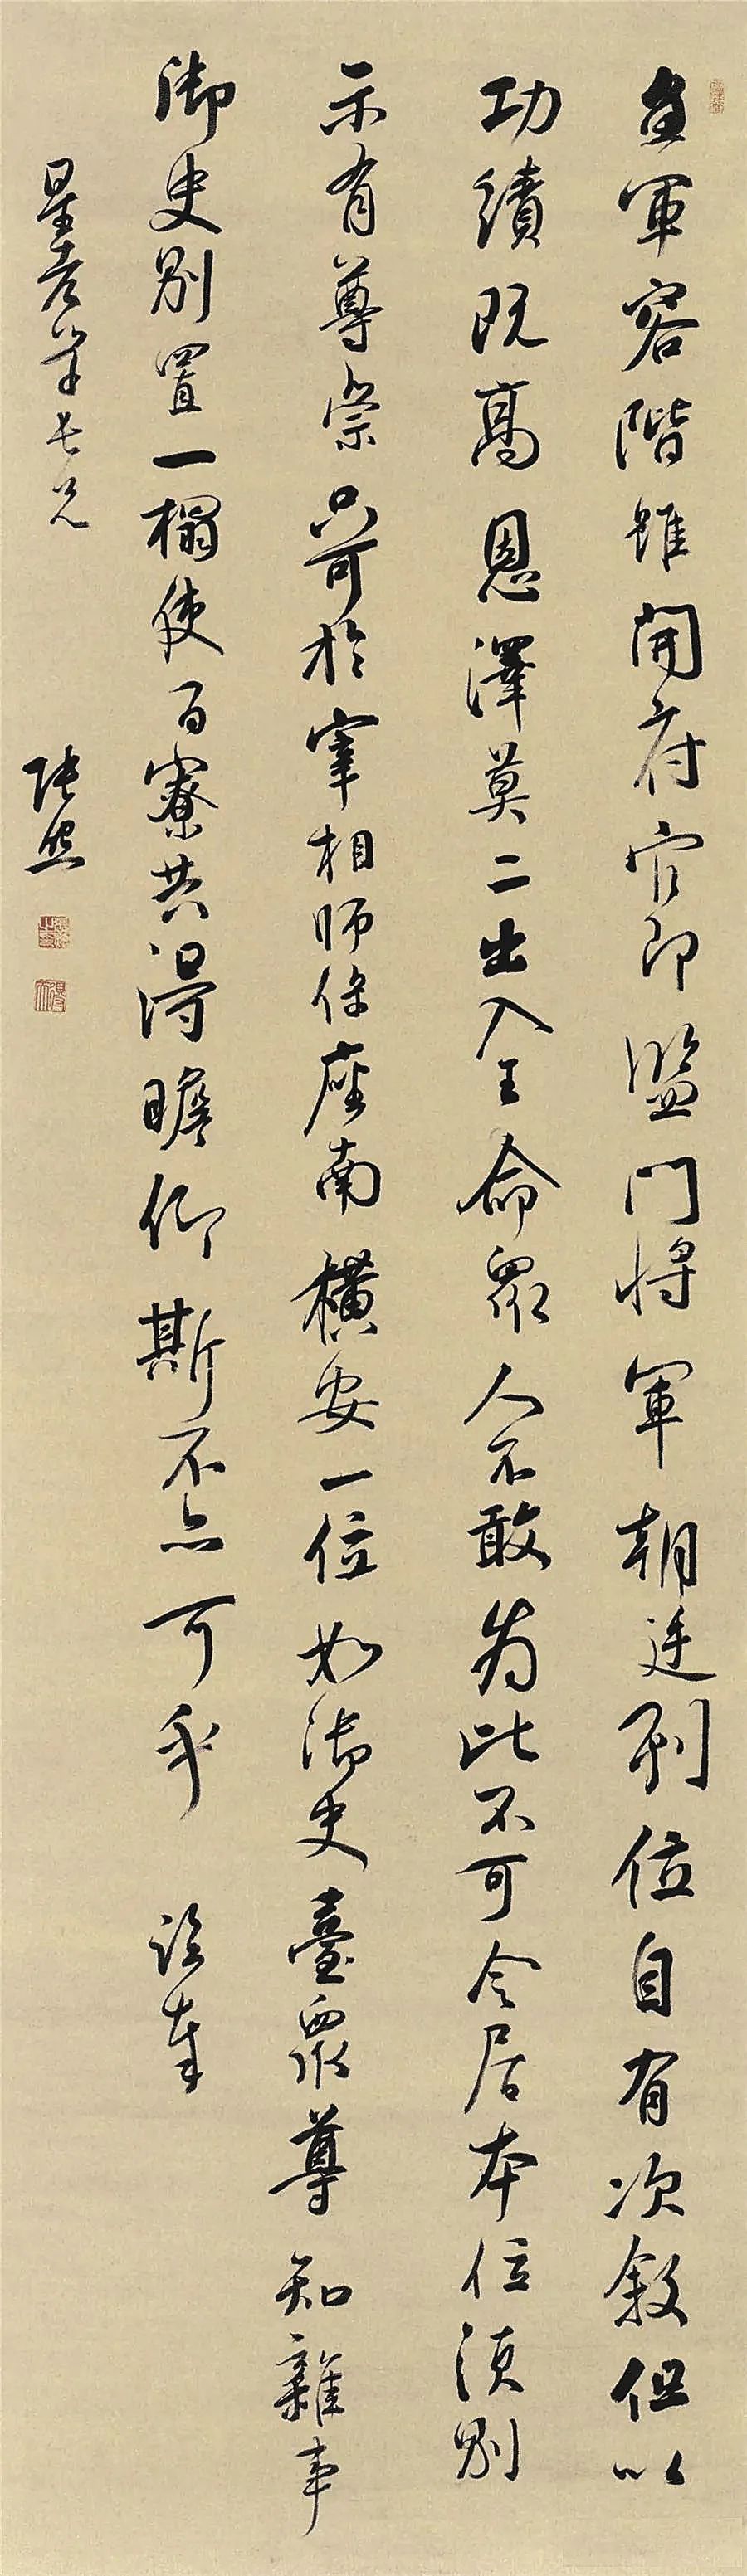 魚軍容階雖開府官即監門將軍朝廷列位自有次敘但以
功績既高恩澤莫二出入王命眾人不敢為比不可令居本位須別
示有尊崇只可於宰相師保座南橫安一位如御史臺眾尊知雜事
御史別置一榻使百寮共得瞻仰斯不亦可乎 臨奉
星老年長兄 張照